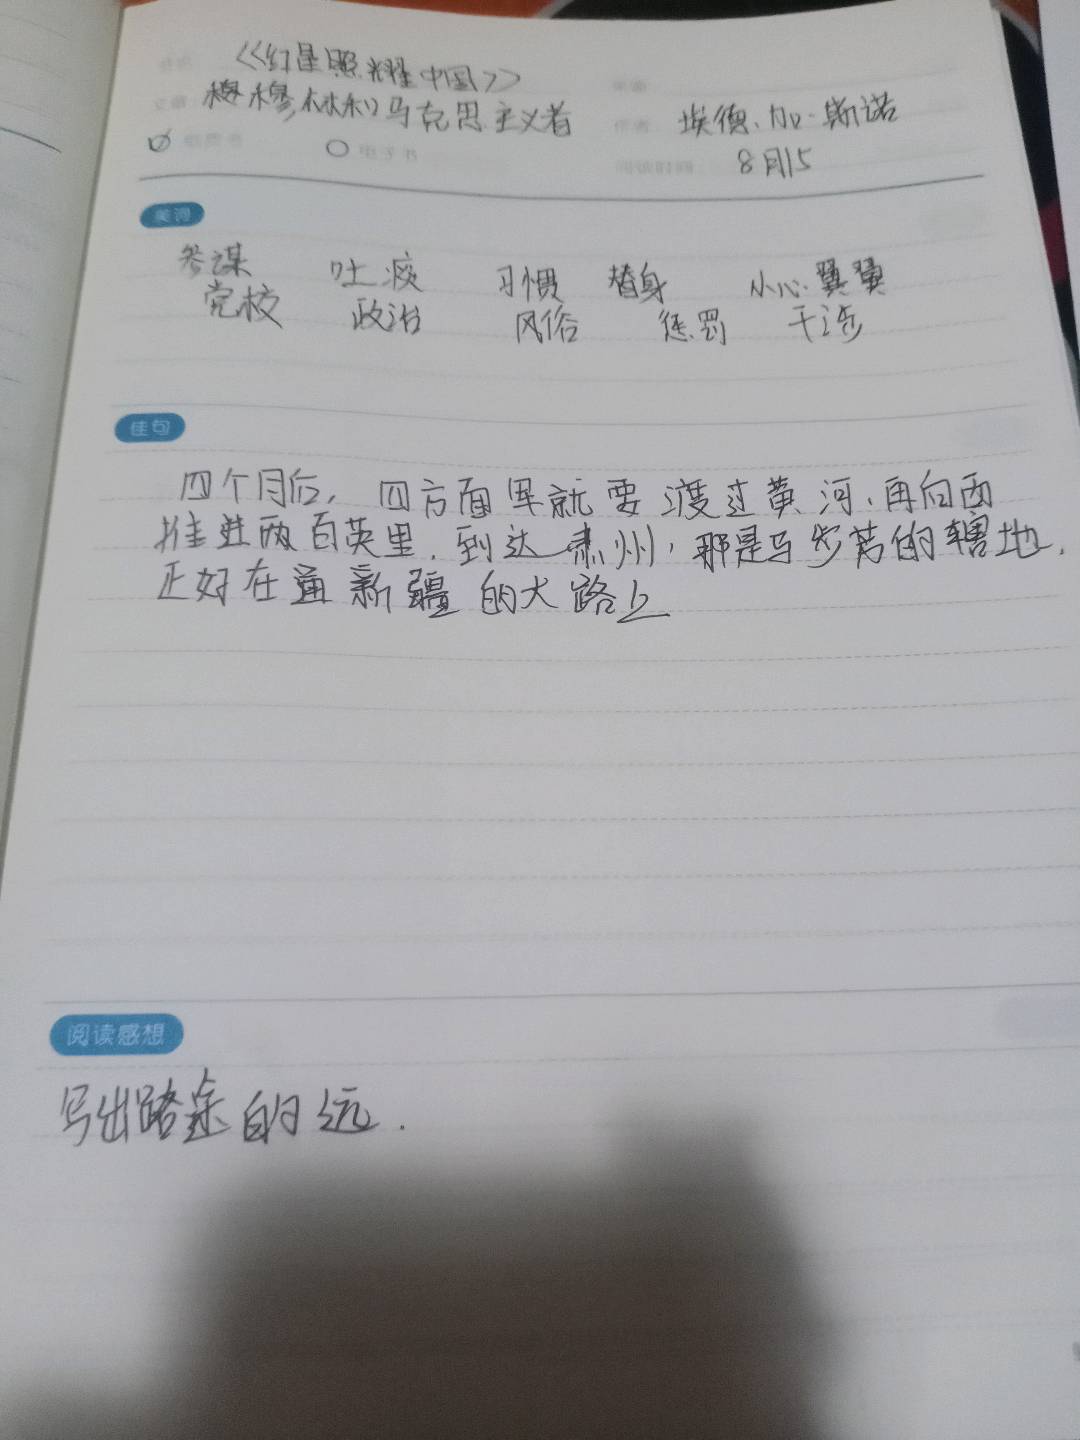 《红星照耀中国》
穆穆林和马克思主义者 作者 埃德、加·斯诺
纸质书 电子书 阅读时间 8月15
美词
参谋 吐痰 习惯 替身 小心翼翼
党校 政治 风俗 惩罚 干涉
佳句
四个月后，四方面军就要渡过黄河、再向西
推进两百英里，到达肃州，那是马步芳的辖地，
正好在通新疆的大路上
阅读感想
写出路途的远．